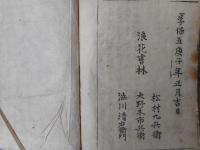 享保五庚子年正月吉日
浪花書林
松村九兵衛
大野木市兵衛
澁川清右衛門